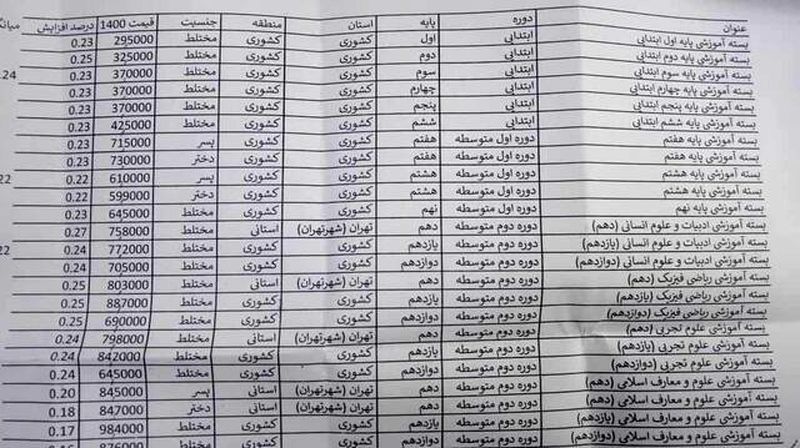 عنوان دوره پایه استان منطقه جنسیت قیمت 1400 درصد افزایش
بسته آموزشی پایه اول ابتدایی ابتدایی اول کشوری کشوری مختلط 295000 0.23
بسته آموزشی پایه دوم ابتدایی ابتدایی دوم کشوری کشوری مختلط 325000 0.25
بسته آموزشی پایه سوم ابتدایی ابتدایی سوم کشوری کشوری مختلط 370000 0.23 .24
بسته آموزشی پایه چهارم ابتدایی ابتدایی چهارم کشوری کشوری مختلط 370000 0.23
بسته آموزشی پایه پنجم ابتدایی ابتدایی پنجم کشوری کشوری مختلط 370000 0.23
بسته آموزشی پایه ششم ابتدایی ابتدایی ششم کشوری کشوری مختلط 425000 0.23
بسته آموزشی پایه هفتم دوره اول متوسطه هفتم کشوری کشوری پسر 715000 0.23
بسته آموزشی پایه هفتم دوره اول متوسطه هفتم کشوری کشوری دختر 730000 0.23
بسته آموزشی پایه هشتم دوره اول متوسطه هشتم کشوری کشوری پسر 610000 0.22 22
بسته آموزشی پایه هشتم دوره اول متوسطه هشتم کشوری کشوری دختر 599000 0.22
بسته آموزشی پایه نهم دوره اول متوسطه نهم کشوری کشوری مختلط 645000 0.23
بسته آموزشی ادبیات و علوم انسانی (دهم) دوره دوم متوسطه دهم تهران (شهرتهران) استانی مختلط 758000 0.27
بسته آموزشی ادبیات و علوم انسانی (یازدهم) دوره دوم متوسطه یازدهم کشوری کشوری مختلط 772000 0.24 22
بسته آموزشی ادبیات و علوم انسانی (دوازدهم) دوره دوم متوسطه دوازدهم کشوری کشوری مختلط 705000 0.24
بسته آموزشی ریاضی فیزیک (دهم) دوره دوم متوسطه دهم تهران (شهرتهران) استانی مختلط 803000 0.25
بسته آموزشی ریاضی فیزیک (یازدهم) دوره دوم متوسطه یازدهم کشوری کشوری مختلط 887000 0.25
بسته آموزشی ریاضی فیزیک (دوازدهم) دوره دوم متوسطه دوازدهم کشوری کشوری مختلط 690000 0.25
بسته آموزشی علوم تجربی (دهم) دوره دوم متوسطه دهم تهران (شهرتهران) استانی مختلط 798000 0.24
بسته آموزشی علوم تجربی (یازدهم) دوره دوم متوسطه یازدهم کشوری کشوری مختلط 842000 0.24
بسته آموزشی علوم تجربی (دوازدهم) دوره دوم متوسطه دوازدهم کشوری کشوری مختلط 645000 0.24
بسته آموزشی علوم و معارف اسلامی (دهم) دوره دوم متوسطه دهم تهران (شهرتهران) استانی پسر 845000 0.20
بسته آموزشی علوم و معارف اسلامی (دهم) دوره دوم متوسطه دهم تهران (شهرتهران) استانی دختر 847000 0.18
بسته آموزشی علوم و معارف اسلامی (یازدهم) دوره دوم متوسطه یازدهم کشوری کشوری مختلط 984000 0.17
بسته آموزشی علوم و معارف اسلامی (دوازدهم) دوره دوم متوسطه دوازدهم کشوری کشوری مختلط